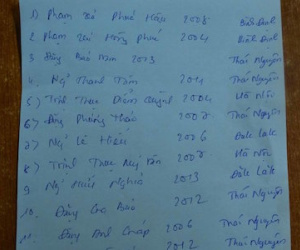 1) Phạm Thị Phúc Hậu 2008 Bình Định
2. Phạm Thị Hồng Phúc 2004 Bình Định
3. Đặng Bảo Nam 2013 Thái Nguyên
4. Ng/ Thanh Tâm 2011 Thái Nguyên
5) Trịnh Thụy Diễm Quỳnh 2004 Hà Nội
6) Đặng Phương Thảo 2007 Thái Nguyên
7) Ng/ Lê Hiếu 2006 Đăk Lăk
8) Trịnh 2007 Hà Nội
9 Ng/ 2013 Đăk Lăk
10. Đặng Gia Bảo 2012 Thái Nguyên
11. Đặng 2006 Thái Nguyên
2012 Thái Nguyên